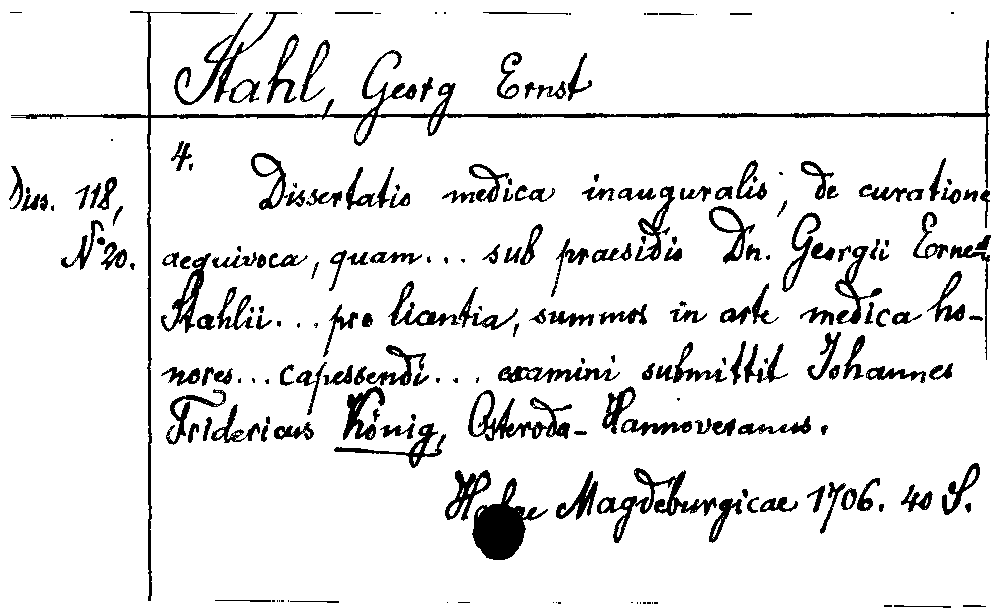 Stahl, Georg Ernst
4.
Diss. 118,
N° 20.
Dissertatio medica inauguralis, de curatione
aequivoca, quam... sub praesidio Dn. Georgii Ernesti
Stahlii... pro licentia, summos in arte medica ho-
nores... capessendi... examini submittit Johannes
Fridericus König, Osteroda-Hannoveranus.
Halae Magdeburgicae 1706. 40 S.